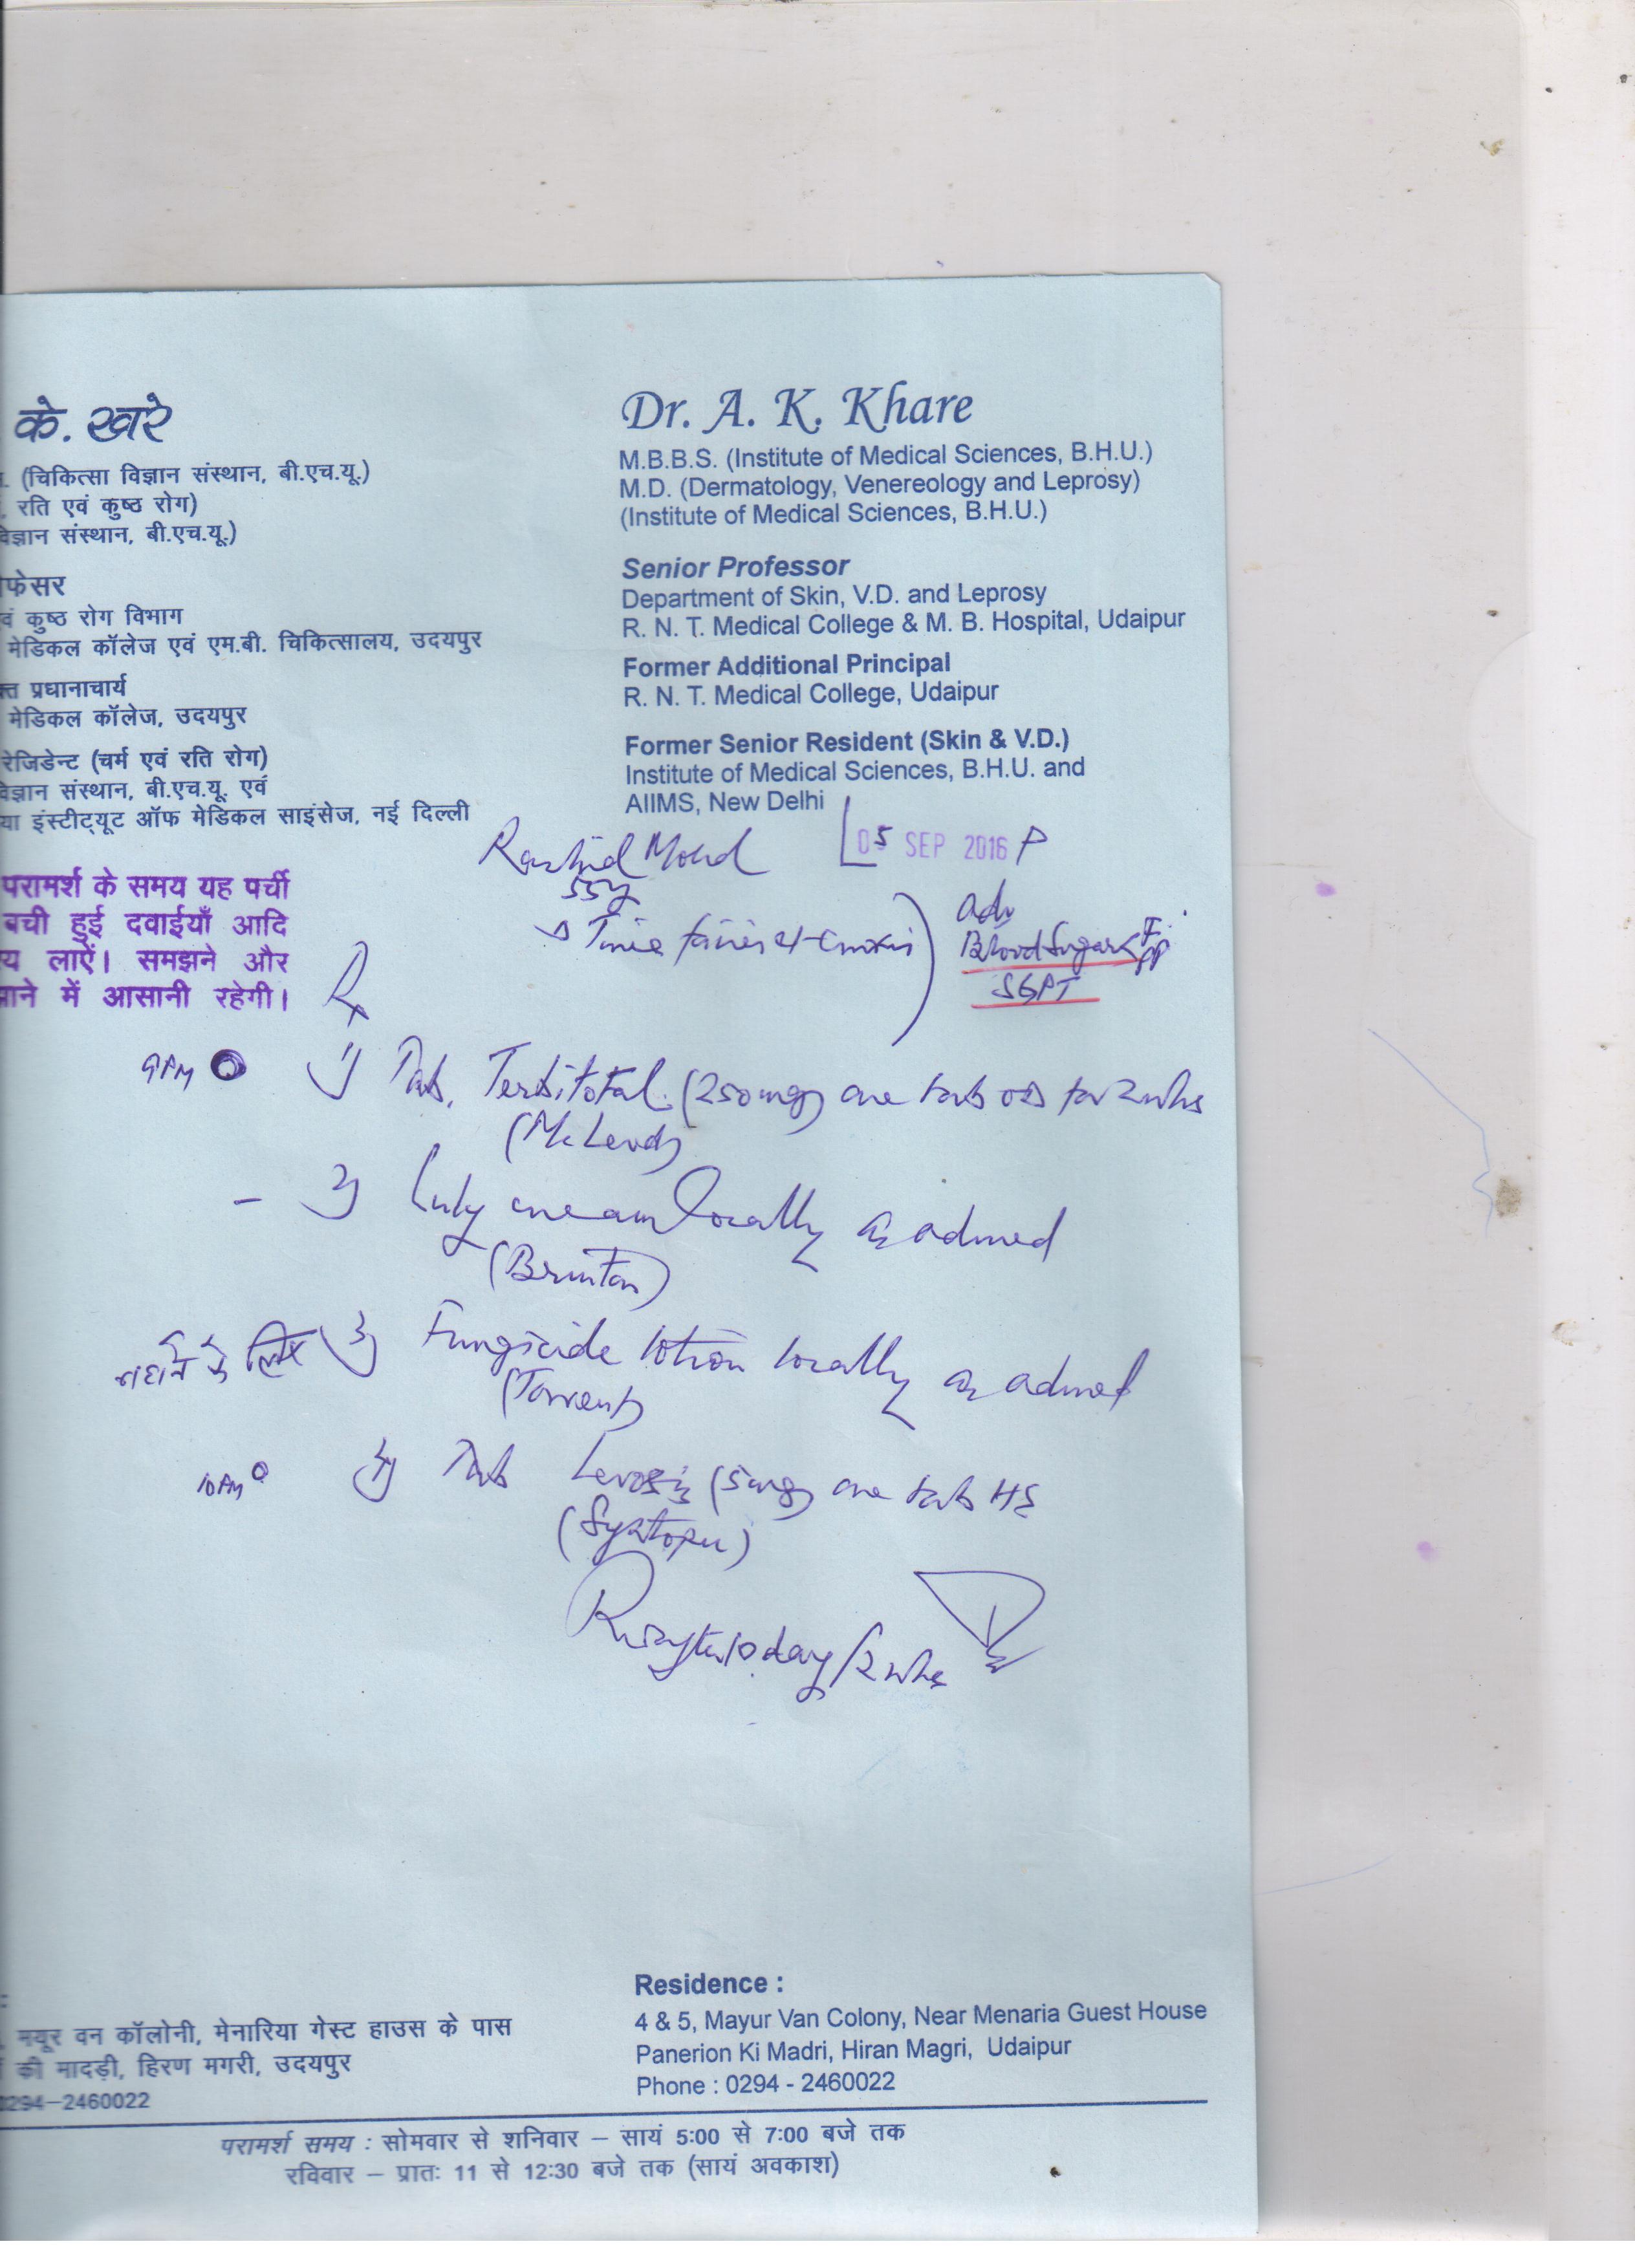 के. खरे
. (चिकित्सा विज्ञान संस्थान, बी.एच.यू.)
रति एवं कुष्ठ रोग)
विज्ञान संस्थान, बी.एच.यू.)
फेसर
वं कुष्ठ रोग विभाग
मेडिकल कॉलेज एवं एम.बी. चिकित्सालय, उदयपुर
क्त प्रधानाचार्य
मेडिकल कॉलेज, उदयपुर
रेजिडेन्ट (चर्म एवं रति रोग)
विज्ञान संस्थान, बी.एच.यू. एवं
या इंस्टीट्यूट ऑफ मेडिकल साइंसेज, नई दिल्ली
Dr. A. K. Khare
M.B.B.S. (Institute of Medical Sciences, B.H.U.)
M.D. (Dermatology, Venereology and Leprosy)
(Institute of Medical Sciences, B.H.U.)
Senior Professor
Department of Skin, V.D. and Leprosy
R. N. T. Medical College & M. B. Hospital, Udaipur
Former Additional Principal
R. N. T. Medical College, Udaipur
Former Senior Resident (Skin & V.D.)
Institute of Medical Sciences, B.H.U. and
AIIMS, New Delhi
परामर्श के समय यह पर्ची
बची हुई दवाईयाँ आदि
य लाऐं। समझने और
माने में आसानी रहेगी।
Rashid Mohd
05 SEP 2016 P
55y
Adv
Blood Sugar F PP
SGPT
Rx
9PM 1) Tab. Terbitotal (250mg) one tab OD for 2 whs
(McLeods)
- 2) Luly cream locally as advised
(Brinton)
नहाने के लिए 3) Fungicide lotion locally as advised
(Torrent)
10PM 4) Tab (5mg) one tab HS
(Systopic)
10 day/2 whs
Residence :
4 & 5, Mayur Van Colony, Near Menaria Guest House
Panerion Ki Madri, Hiran Magri, Udaipur
Phone : 0294 - 2460022
मयूर वन कॉलोनी, मेनारिया गेस्ट हाउस के पास
की मादड़ी, हिरण मगरी, उदयपुर
0294–2460022
परामर्श समय : सोमवार से शनिवार – सायं 5:00 से 7:00 बजे तक
रविवार – प्रातः 11 से 12:30 बजे तक (सायं अवकाश)